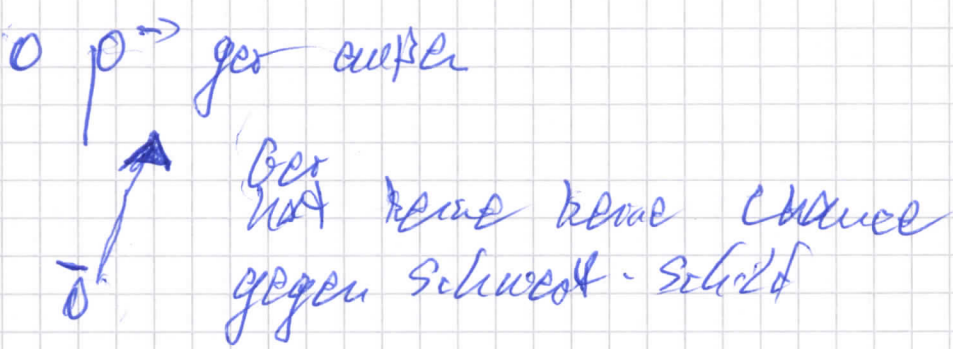 O O → ger außen
Ger
hat keine keine chance
gegen Schwert-Schild